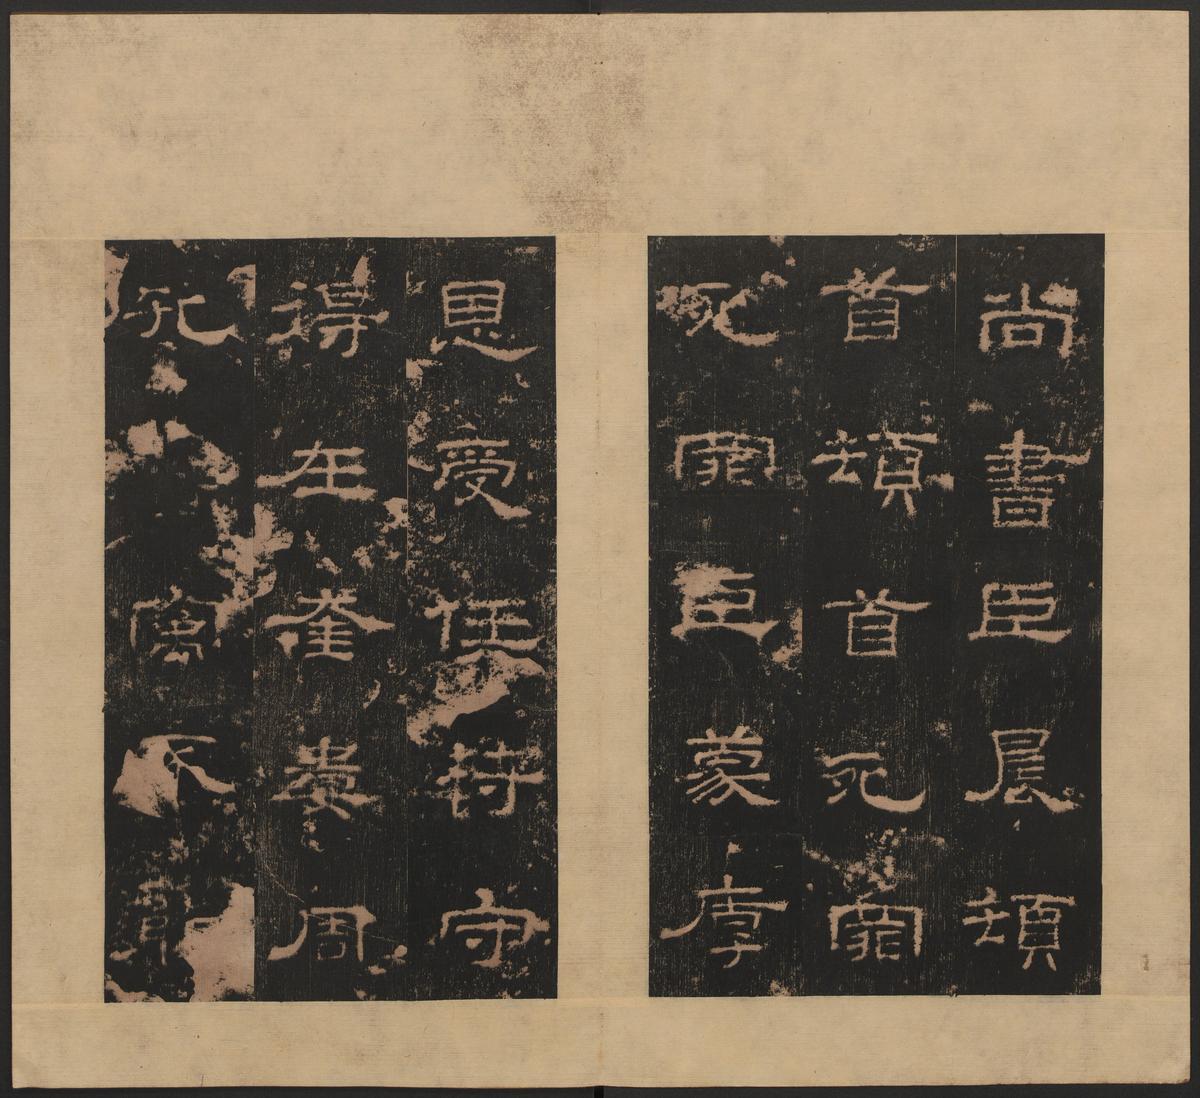 尚書臣晨頓
首頓首死罪
死罪臣蒙厚
恩受任符守
得在奎婁周
孔寓不能